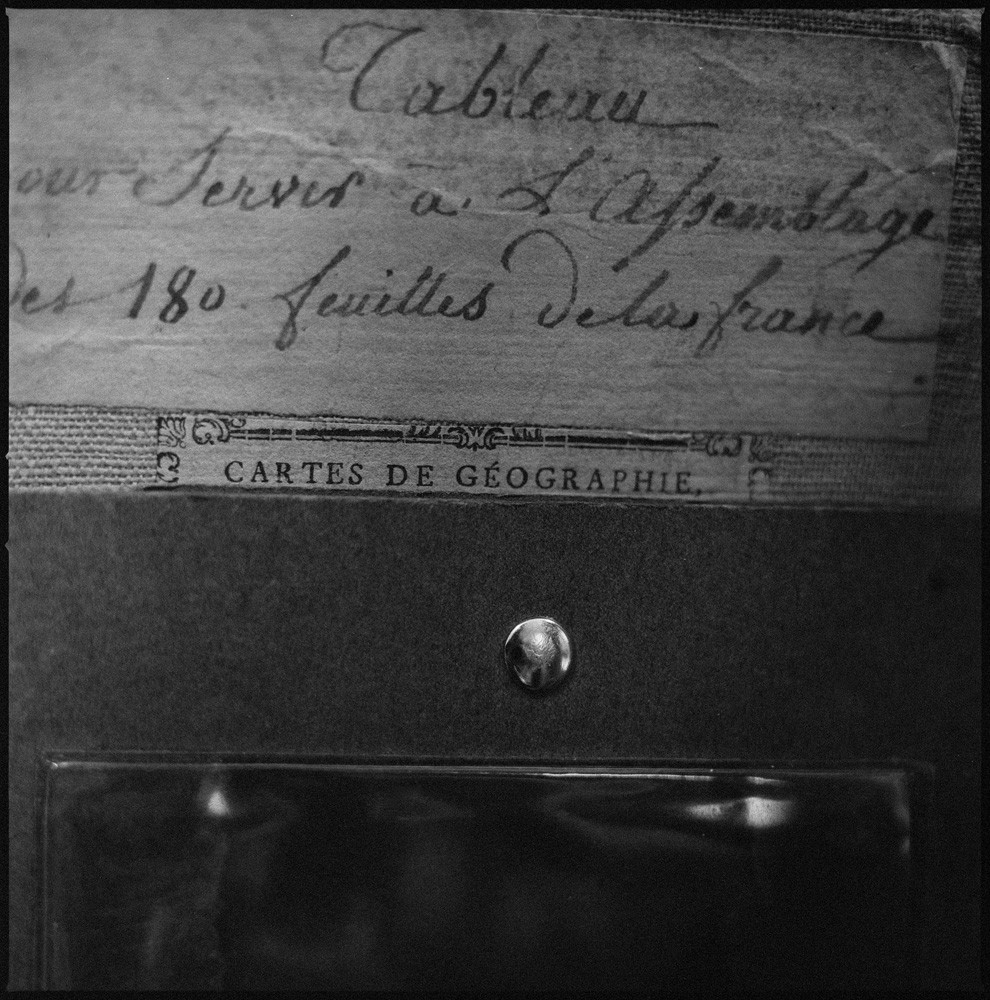 Tableau
our Servir à L'Assemblage
des 180 feuilles de la france
CARTES DE GÉOGRAPHIE,